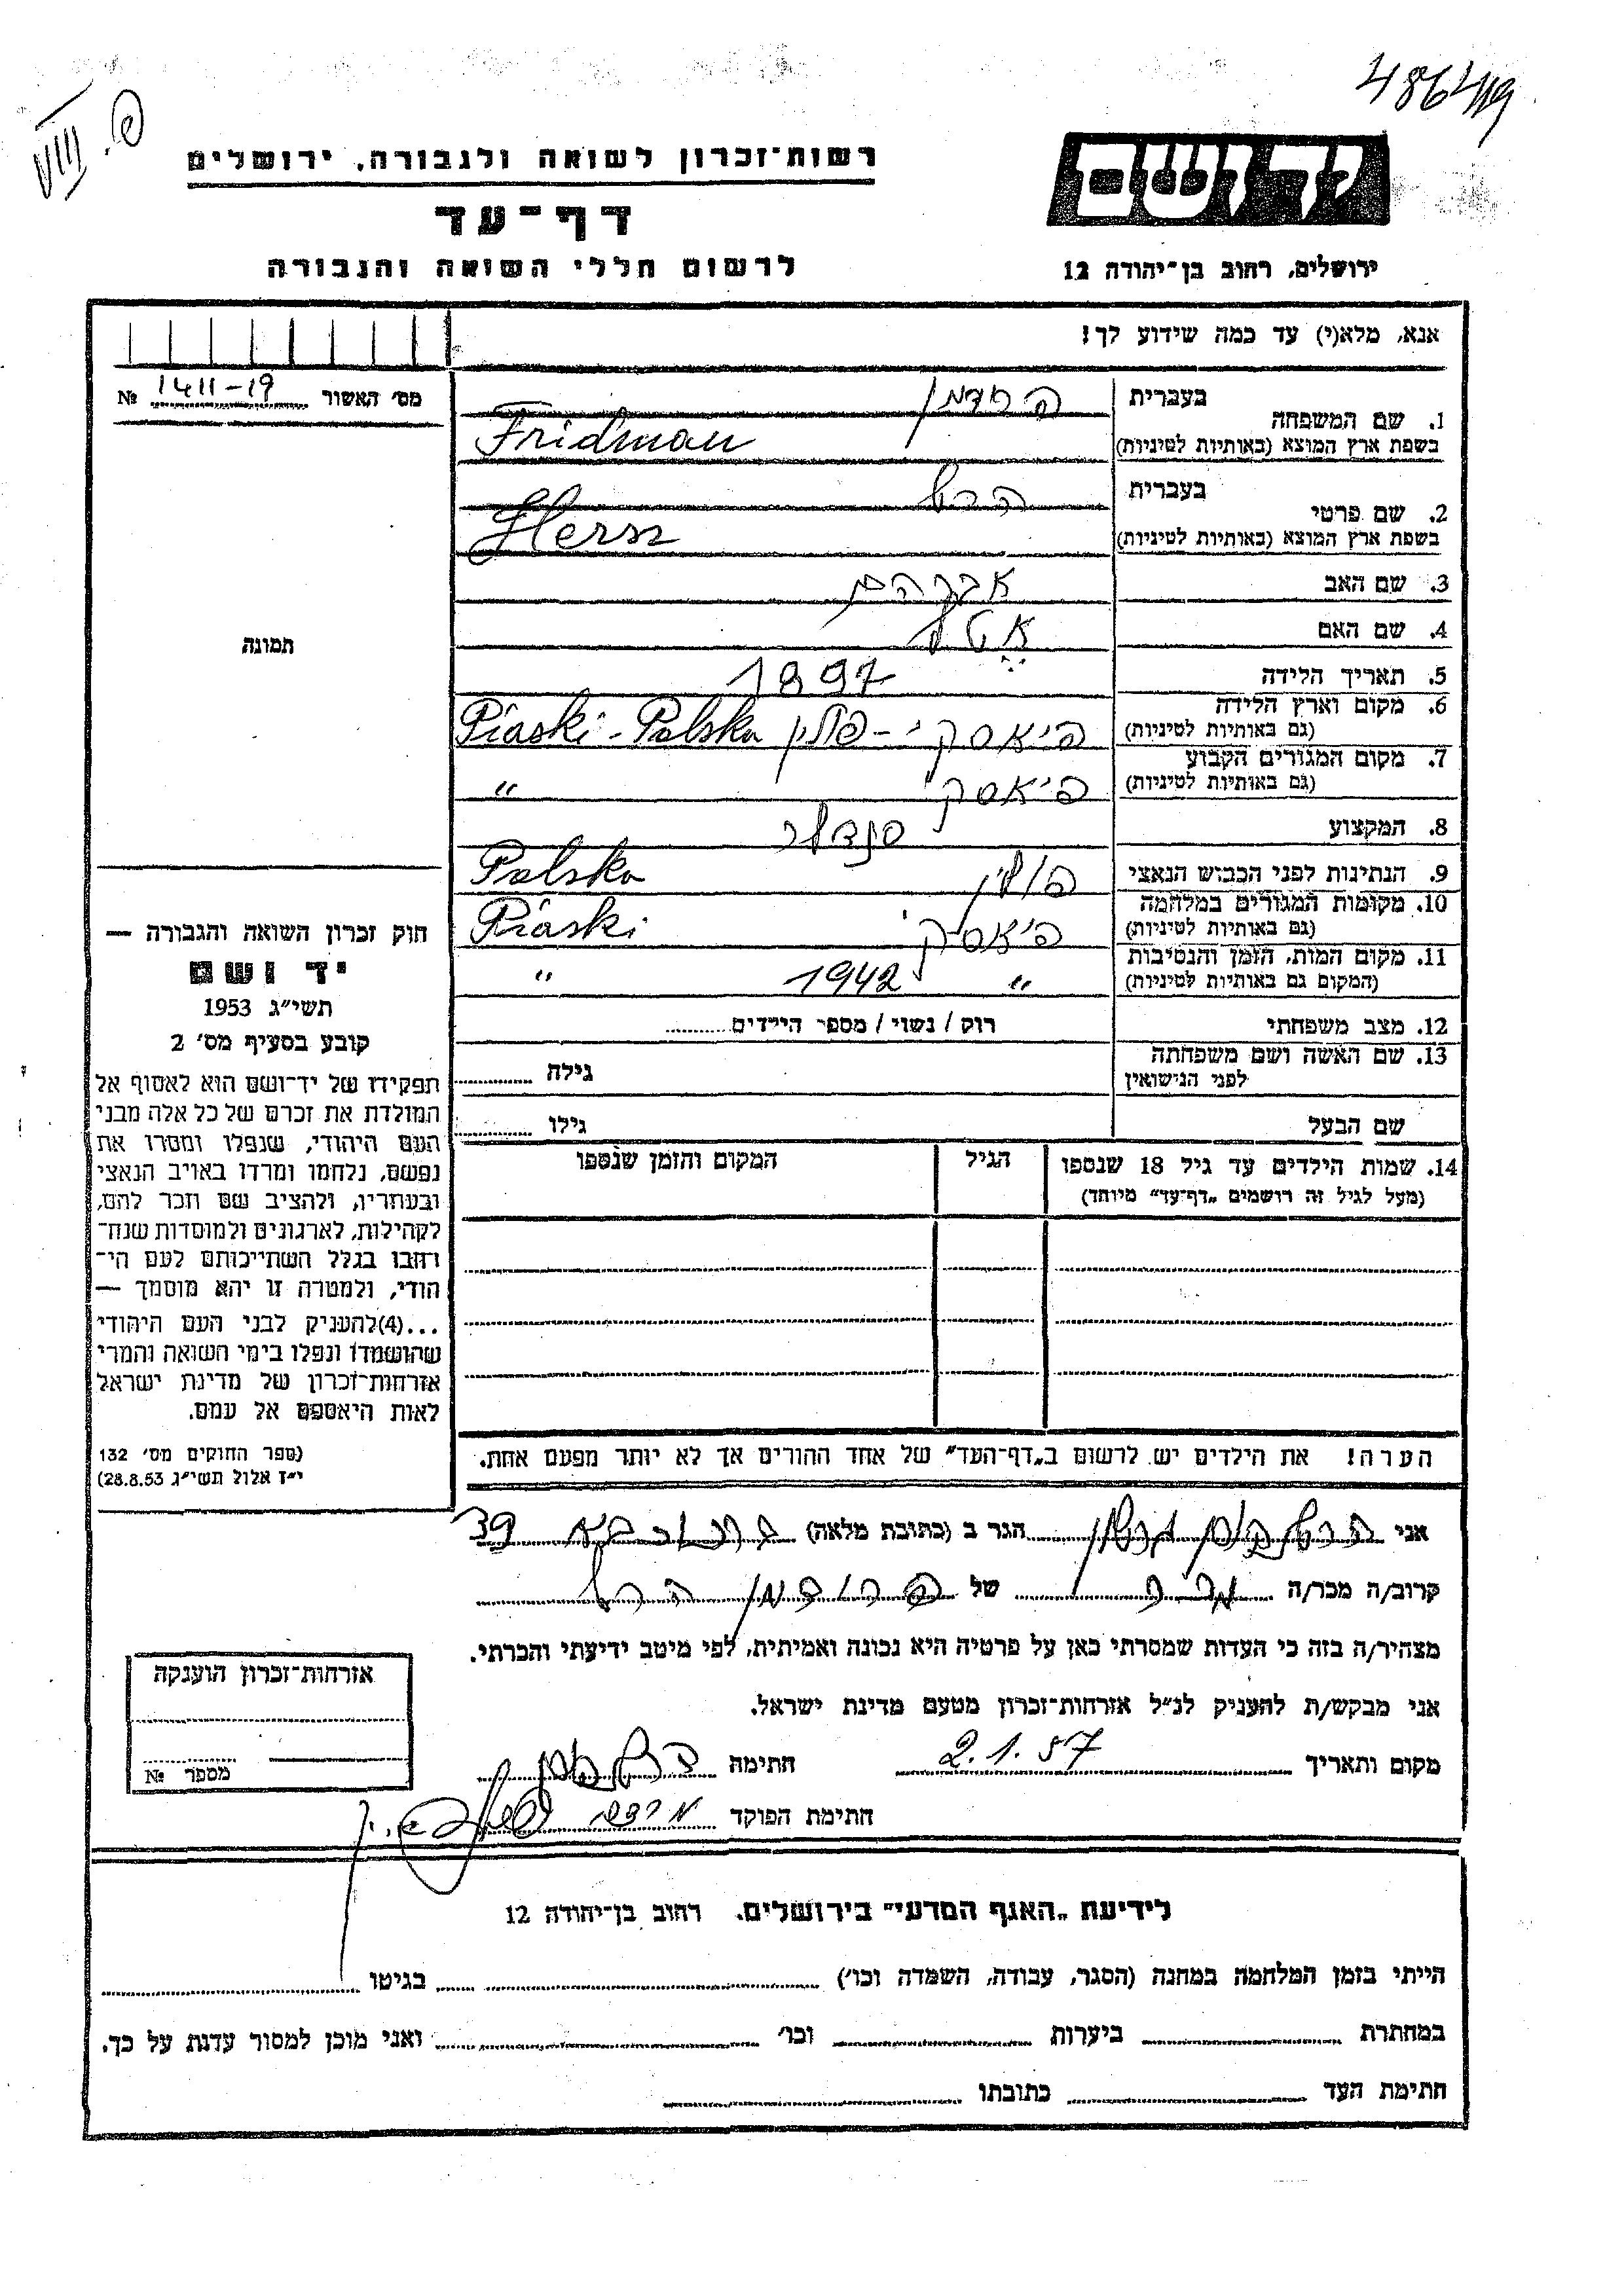 486419
פ. VIII
יד ושם
ירושלים, רחוב בן־יהודה 12
רשות־זכרון לשואה ולגבורה, ירושלים
דף־עד
לרשום חללי השואה והגבורה
אנא, מלא(י) עד כמה שידוע לך!
מס׳ האשור 1411-19 №
תמונה
1. שם המשפחה בעברית פרידמן
בשפת ארץ המוצא (באותיות לטיניות) Fridman
2. שם פרטי בעברית הרש
בשפת ארץ המוצא (באותיות לטיניות) Hersz
3. שם האב אברהם
4. שם האם
5. תאריך הלידה 1897
6. מקום וארץ הלידה פיאסקי - פולין Piaski - Polska
(גם באותיות לטיניות)
7. מקום המגורים הקבוע פיאסקי "
(גם באותיות לטיניות)
8. המקצוע סנדלר
9. הנתינות לפני הכבוש הנאצי פולין Polska
10. מקומות המגורים במלחמה פיאסקי Piaski
(גם באותיות לטיניות)
11. מקום המות, הזמן והנסיבות " 1942 "
(המקום גם באותיות לטיניות)
12. מצב משפחתי רוק / נשוי / מספר הילדים
13. שם האשה ושם משפחתה גילה
לפני הנישואין
שם הבעל גילו
14. שמות הילדים עד גיל 18 שנספו הגיל המקום והזמן שנספו
(מעל לגיל זה רושמים „דף־עד" מיוחד)
הערה! את הילדים יש לרשום ב„דף־העד" של אחד ההורים אך לא יותר מפעם אחת.
חוק זכרון השואה והגבורה —
יד ושם
תשי״ג 1953
קובע בסעיף מס׳ 2
תפקידו של יד־ושם הוא לאסוף אל
המולדת את זכרם של כל אלה מבני
העם היהודי, שנפלו ומסרו את
נפשם, נלחמו ומרדו באויב הנאצי
ובעוזריו, ולהציב שם וזכר להם,
לקהילות, לארגונים ולמוסדות שנח־
רחבו בגלל השתייכותם לעם הי־
הודי, ולמטרה זו יהא מוסמך —
...(4)להעניק לבני העם היהודי
שהושמדו ונפלו בימי השואה והמרי
אזרחות־זכרון של מדינת ישראל
לאות היאספם אל עמם.
(ספר החוקים מס׳ 132
י״ז אלול תשי״ג 28.8.53)
אני הגר ב (כתובת מלאה) 39
קרוב/ה מכר/ה של פרידמן הרש
מצהיר/ה בזה כי העדות שמסרתי כאן על פרטיה היא נכונה ואמיתית, לפי מיטב ידיעתי והכרתי.
אני מבקש/ת להעניק לנ״ל אזרחות־זכרון מטעם מדינת ישראל.
מקום ותאריך 2.1.57 חתימה
חתימת הפוקד
אזרחות־זכרון הוענקה
מספר №
לידיעת „האגף המדעי" בירושלים, רחוב בן־יהודה 12
הייתי בזמן המלחמה במחנה (הסגר, עבודה, השמדה וכו׳) בגיטו
במחתרת ביערות וכו׳ ואני מוכן למסור עדות על כך.
חתימת העד כתובתו